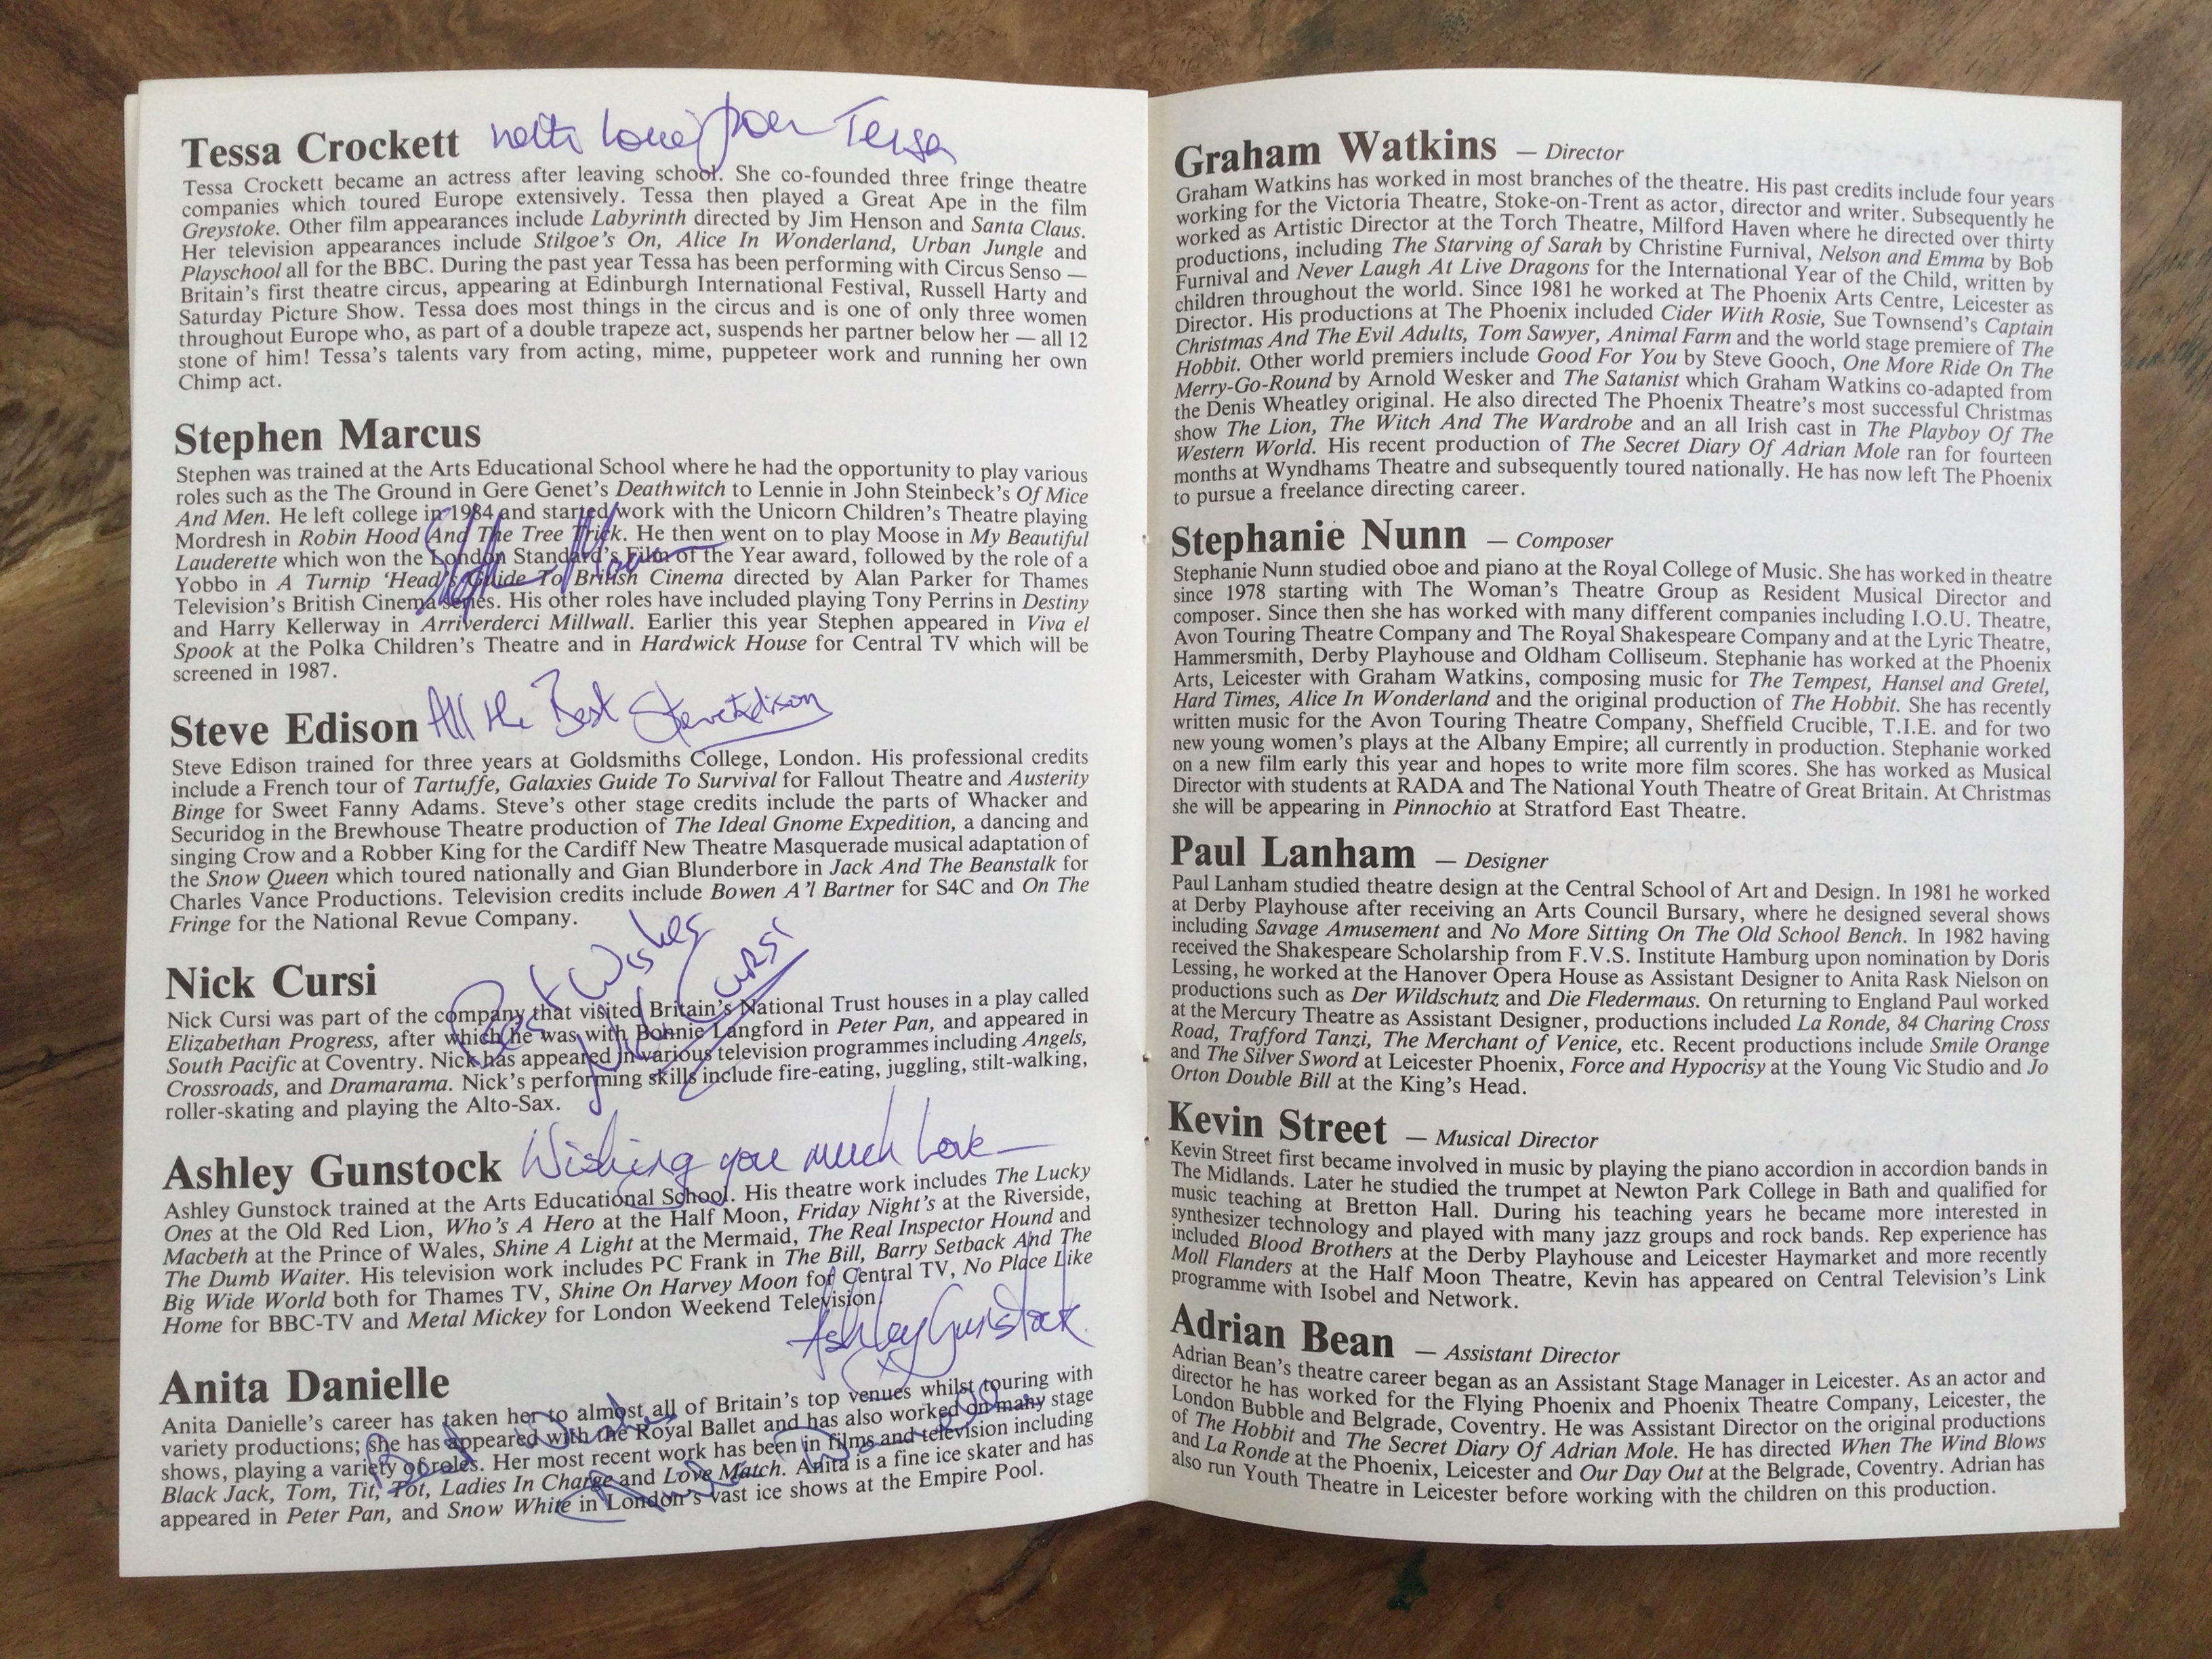 Tessa Crockett with love from Tessa
Tessa Crockett became an actress after leaving school. She co-founded three fringe theatre
companies which toured Europe extensively. Tessa then played a Great Ape in the film
Greystoke. Other film appearances include Labyrinth directed by Jim Henson and Santa Claus.
Her television appearances include Stilgoe's On, Alice In Wonderland, Urban Jungle and
Playschool all for the BBC. During the past year Tessa has been performing with Circus Senso —
Britain's first theatre circus, appearing at Edinburgh International Festival, Russell Harty and
Saturday Picture Show. Tessa does most things in the circus and is one of only three women
throughout Europe who, as part of a double trapeze act, suspends her partner below her — all 12
stone of him! Tessa's talents vary from acting, mime, puppeteer work and running her own
Chimp act.
Stephen Marcus
Stephen was trained at the Arts Educational School where he had the opportunity to play various
roles such as the The Ground in Gere Genet's Deathwitch to Lennie in John Steinbeck's Of Mice
And Men. He left college in 1984 and started work with the Unicorn Children's Theatre playing
Mordresh in Robin Hood And The Tree Trick. He then went on to play Moose in My Beautiful
Lauderette which won the London Standard's Film of the Year award, followed by the role of a
Yobbo in A Turnip 'Head's Guide To British Cinema directed by Alan Parker for Thames
Television's British Cinema series. His other roles have included playing Tony Perrins in Destiny
and Harry Kellerway in Arriverderci Millwall. Earlier this year Stephen appeared in Viva el
Spook at the Polka Children's Theatre and in Hardwick House for Central TV which will be
screened in 1987.
Steve Edison All the Best Steve Edison
Steve Edison trained for three years at Goldsmiths College, London. His professional credits
include a French tour of Tartuffe, Galaxies Guide To Survival for Fallout Theatre and Austerity
Binge for Sweet Fanny Adams. Steve's other stage credits include the parts of Whacker and
Securidog in the Brewhouse Theatre production of The Ideal Gnome Expedition, a dancing and
singing Crow and a Robber King for the Cardiff New Theatre Masquerade musical adaptation of
the Snow Queen which toured nationally and Gian Blunderbore in Jack And The Beanstalk for
Charles Vance Productions. Television credits include Bowen A'l Bartner for S4C and On The
Fringe for the National Revue Company.
Best Wishes
Nick Cursi
Nick Cursi
Nick Cursi was part of the company that visited Britain's National Trust houses in a play called
Elizabethan Progress, after which he was with Bonnie Langford in Peter Pan, and appeared in
South Pacific at Coventry. Nick has appeared in various television programmes including Angels,
Crossroads, and Dramarama. Nick's performing skills include fire-eating, juggling, stilt-walking,
roller-skating and playing the Alto-Sax.
Ashley Gunstock Wishing you much Love —
Ashley Gunstock trained at the Arts Educational School. His theatre work includes The Lucky
Ones at the Old Red Lion, Who's A Hero at the Half Moon, Friday Night's at the Riverside,
Macbeth at the Prince of Wales, Shine A Light at the Mermaid, The Real Inspector Hound and
The Dumb Waiter. His television work includes PC Frank in The Bill, Barry Setback And The
Big Wide World both for Thames TV, Shine On Harvey Moon for Central TV, No Place Like
Home for BBC-TV and Metal Mickey for London Weekend Television.
Ashley Gunstock
Anita Danielle
Anita Danielle's career has taken her to almost all of Britain's top venues whilst touring with
variety productions; she has appeared with the Royal Ballet and has also worked on many stage
shows, playing a variety of roles. Her most recent work has been in films and television including
Black Jack, Tom, Tit, Tot, Ladies In Charge and Love Match. Anita is a fine ice skater and has
appeared in Peter Pan, and Snow White in London's vast ice shows at the Empire Pool.
Best Wishes
Anita Danielle
Graham Watkins — Director
Graham Watkins has worked in most branches of the theatre. His past credits include four years
working for the Victoria Theatre, Stoke-on-Trent as actor, director and writer. Subsequently he
worked as Artistic Director at the Torch Theatre, Milford Haven where he directed over thirty
productions, including The Starving of Sarah by Christine Furnival, Nelson and Emma by Bob
Furnival and Never Laugh At Live Dragons for the International Year of the Child, written by
children throughout the world. Since 1981 he worked at The Phoenix Arts Centre, Leicester as
Director. His productions at The Phoenix included Cider With Rosie, Sue Townsend's Captain
Christmas And The Evil Adults, Tom Sawyer, Animal Farm and the world stage premiere of The
Hobbit. Other world premiers include Good For You by Steve Gooch, One More Ride On The
Merry-Go-Round by Arnold Wesker and The Satanist which Graham Watkins co-adapted from
the Denis Wheatley original. He also directed The Phoenix Theatre's most successful Christmas
show The Lion, The Witch And The Wardrobe and an all Irish cast in The Playboy Of The
Western World. His recent production of The Secret Diary Of Adrian Mole ran for fourteen
months at Wyndhams Theatre and subsequently toured nationally. He has now left The Phoenix
to pursue a freelance directing career.
Stephanie Nunn — Composer
Stephanie Nunn studied oboe and piano at the Royal College of Music. She has worked in theatre
since 1978 starting with The Woman's Theatre Group as Resident Musical Director and
composer. Since then she has worked with many different companies including I.O.U. Theatre,
Avon Touring Theatre Company and The Royal Shakespeare Company and at the Lyric Theatre,
Hammersmith, Derby Playhouse and Oldham Colliseum. Stephanie has worked at the Phoenix
Arts, Leicester with Graham Watkins, composing music for The Tempest, Hansel and Gretel,
Hard Times, Alice In Wonderland and the original production of The Hobbit. She has recently
written music for the Avon Touring Theatre Company, Sheffield Crucible, T.I.E. and for two
new young women's plays at the Albany Empire; all currently in production. Stephanie worked
on a new film early this year and hopes to write more film scores. She has worked as Musical
Director with students at RADA and The National Youth Theatre of Great Britain. At Christmas
she will be appearing in Pinnochio at Stratford East Theatre.
Paul Lanham — Designer
Paul Lanham studied theatre design at the Central School of Art and Design. In 1981 he worked
at Derby Playhouse after receiving an Arts Council Bursary, where he designed several shows
including Savage Amusement and No More Sitting On The Old School Bench. In 1982 having
received the Shakespeare Scholarship from F.V.S. Institute Hamburg upon nomination by Doris
Lessing, he worked at the Hanover Opera House as Assistant Designer to Anita Rask Nielson on
productions such as Der Wildschutz and Die Fledermaus. On returning to England Paul worked
at the Mercury Theatre as Assistant Designer, productions included La Ronde, 84 Charing Cross
Road, Trafford Tanzi, The Merchant of Venice, etc. Recent productions include Smile Orange
and The Silver Sword at Leicester Phoenix, Force and Hypocrisy at the Young Vic Studio and Jo
Orton Double Bill at the King's Head.
Kevin Street — Musical Director
Kevin Street first became involved in music by playing the piano accordion in accordion bands in
The Midlands. Later he studied the trumpet at Newton Park College in Bath and qualified for
music teaching at Bretton Hall. During his teaching years he became more interested in
synthesizer technology and played with many jazz groups and rock bands. Rep experience has
included Blood Brothers at the Derby Playhouse and Leicester Haymarket and more recently
Moll Flanders at the Half Moon Theatre, Kevin has appeared on Central Television's Link
programme with Isobel and Network.
Adrian Bean — Assistant Director
Adrian Bean's theatre career began as an Assistant Stage Manager in Leicester. As an actor and
director he has worked for the Flying Phoenix and Phoenix Theatre Company, Leicester, the
London Bubble and Belgrade, Coventry. He was Assistant Director on the original productions
of The Hobbit and The Secret Diary Of Adrian Mole. He has directed When The Wind Blows
and La Ronde at the Phoenix, Leicester and Our Day Out at the Belgrade, Coventry. Adrian has
also run Youth Theatre in Leicester before working with the children on this production.